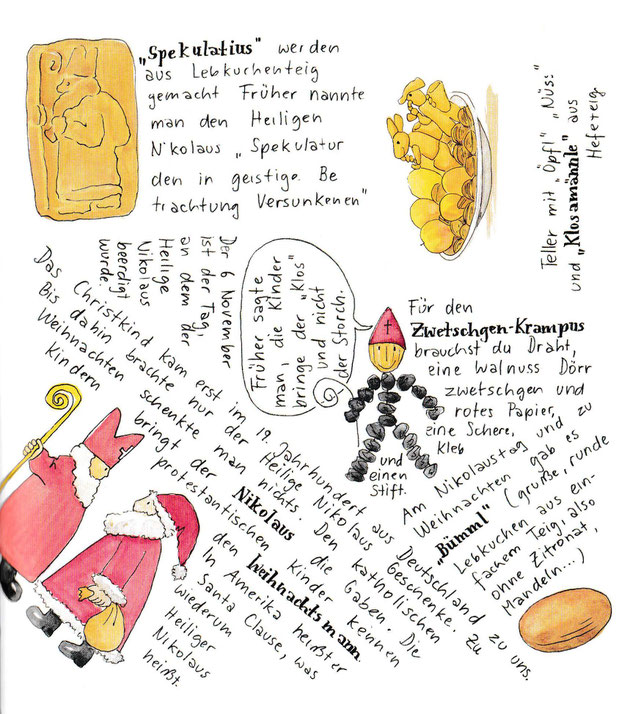 „Spekulatius" werden
aus Lebkuchenteig
gemacht Früher nannte
man den Heiligen
Nikolaus „Spekulatur
den in geistige. Be
trachtung Versunkenen"
Teller mit „Öpfl" „Nüss"
und „Klosamännle" aus
Hefeteig.
Der 6 November
ist der Tag,
an dem der
Heilige
Nikolaus
beerdigt
wurde
Früher sagte
man, die Kinder
bringe der „Klos"
und nicht
der Storch.
Für den
Zwetschgen-Krampus
brauchst du Draht,
eine Walnuss Dörr
zwetschgen und
rotes Papier,
eine Schere,
Kleb
und
einen
Stift.
Das Christkind kam erst im 19. Jahrhundert aus Deutschland zu uns.
Bis dahin brachte nur der Heilige Nikolaus Geschenke. Zu
Weihnachten schenkte man nichts. Den katholischen
Kindern bringt der Nikolaus die Gaben. Die
protestantischen Kinder kennen
den Weihnachtsmann.
In Amerika heißt er
Santa Clause, was
wiederum
Heiliger
Nikolaus
heißt.
Am Nikolaustag und zu
Weihnachten gab es
„Bümml" (große, runde
Lebkuchen aus ein-
fachem Teig, also
ohne Zitronat,
Mandeln...)